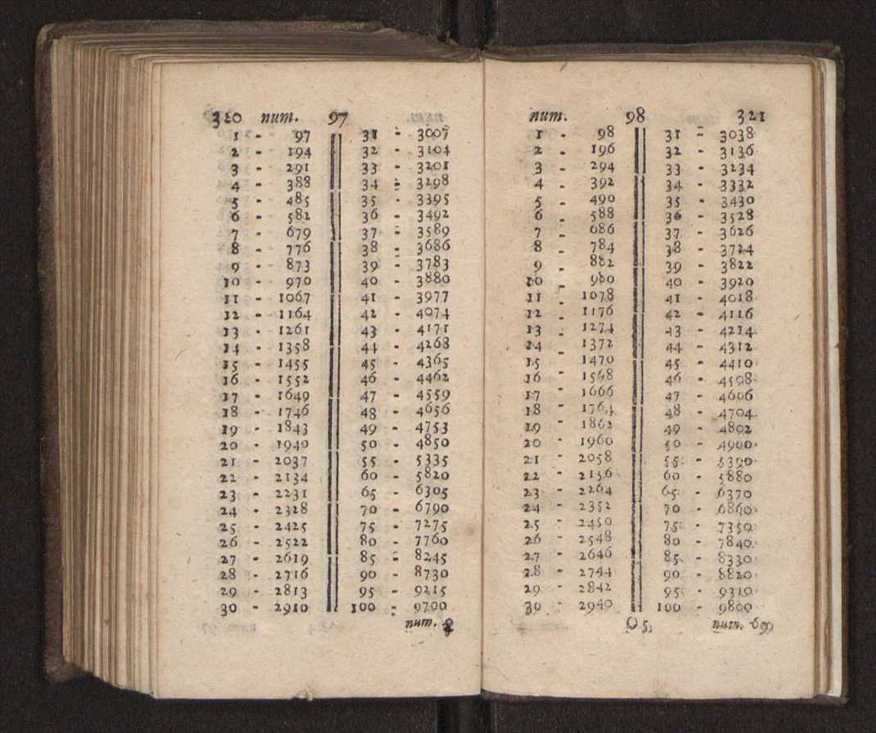 320 num. 97
1 - 97 31 - 3007
2 - 194 32 - 3104
3 - 291 33 - 3201
4 - 388 34 - 3298
5 - 485 35 - 3395
6 - 582 36 - 3492
7 - 679 37 - 3589
8 - 776 38 - 3686
9 - 873 39 - 3783
10 - 970 40 - 3880
11 - 1067 41 - 3977
12 - 1164 42 - 4074
13 - 1261 43 - 4171
14 - 1358 44 - 4268
15 - 1455 45 - 4365
16 - 1552 46 - 4462
17 - 1649 47 - 4559
18 - 1746 48 - 4656
19 - 1843 49 - 4753
20 - 1940 50 - 4850
21 - 2037 55 - 5335
22 - 2134 60 - 5820
23 - 2231 65 - 6305
24 - 2328 70 - 6790
25 - 2425 75 - 7275
26 - 2522 80 - 7760
27 - 2619 85 - 8245
28 - 2716 90 - 8730
29 - 2813 95 - 9215
30 - 2910 100 - 9700
num.
num. 98 321
1 - 98 31 - 3038
2 - 196 32 - 3136
3 - 294 33 - 3234
4 - 392 34 - 3332
5 - 490 35 - 3430
6 - 588 36 - 3528
7 - 686 37 - 3626
8 - 784 38 - 3724
9 - 882 39 - 3822
10 - 980 40 - 3920
11 - 1078 41 - 4018
12 - 1176 42 - 4116
13 - 1274 43 - 4214
14 - 1372 44 - 4312
15 - 1470 45 - 4410
16 - 1568 46 - 4508
17 - 1666 47 - 4606
18 - 1764 48 - 4704
19 - 1862 49 - 4802
20 - 1960 50 - 4900
21 - 2058 55 - 5390
22 - 2156 60 - 5880
23 - 2264 65 - 6370
24 - 2352 70 - 6860
25 - 2450 75 - 7350
26 - 2548 80 - 7840
27 - 2646 85 - 8330
28 - 2744 90 - 8820
29 - 2842 95 - 9310
30 - 2940 100 - 9800
num.